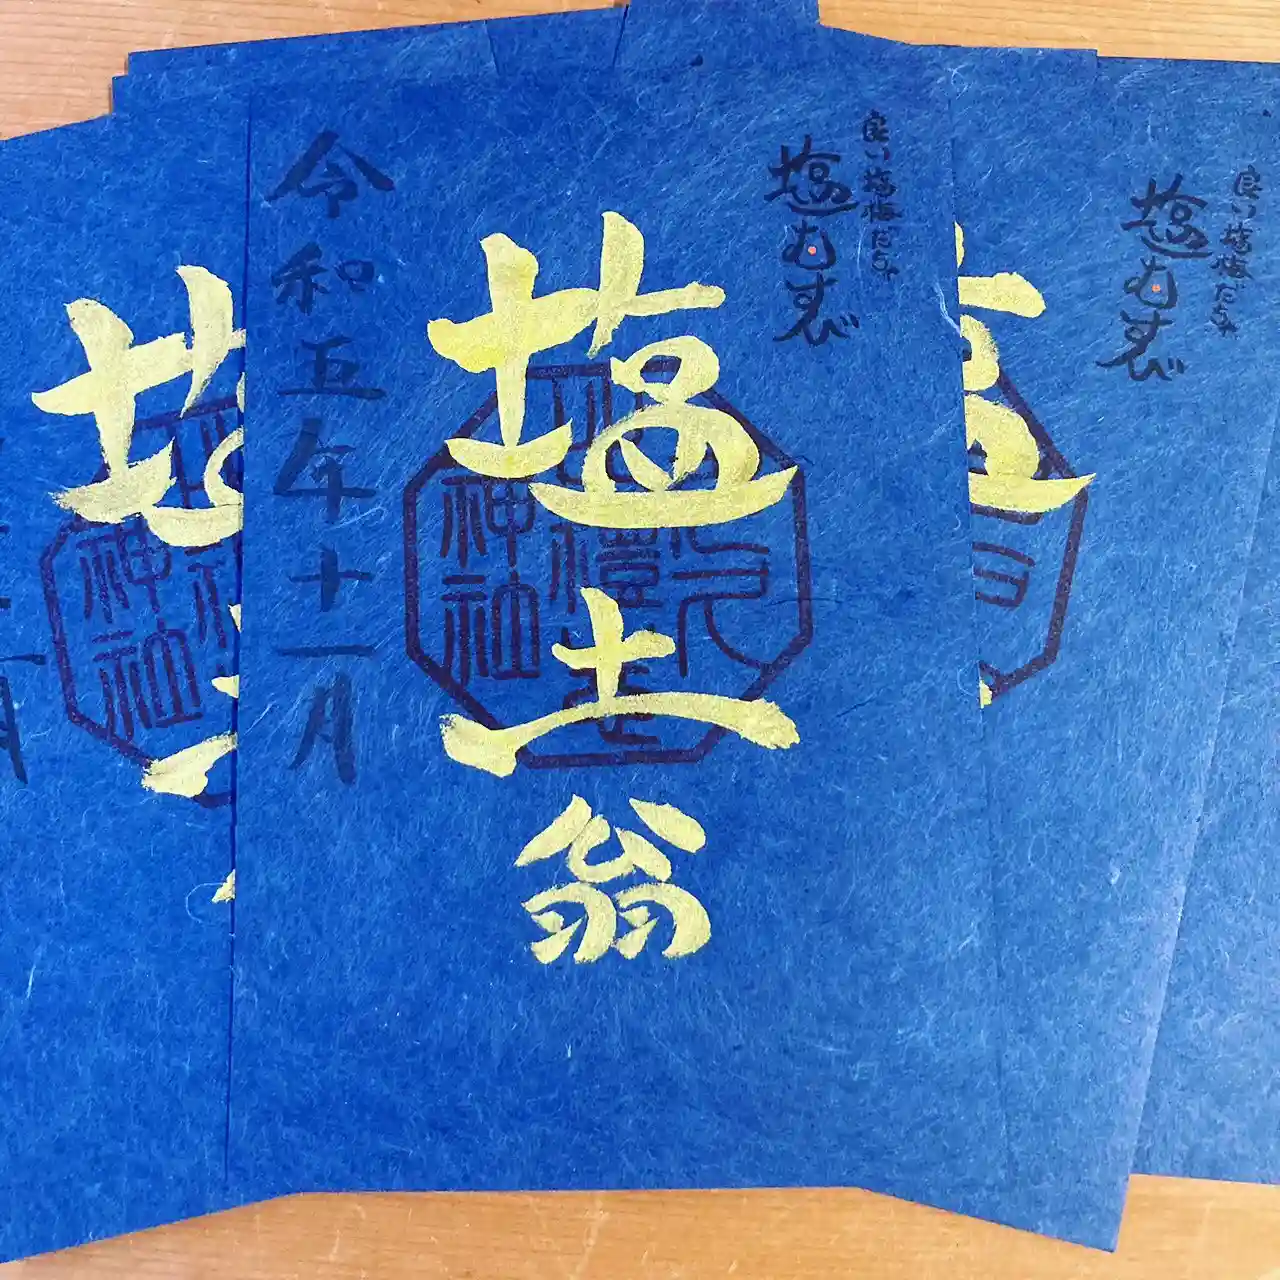 良い塩梅だらけ
塩むすび
塩土翁
令和五年十一月
神社
塩
神社
月
良い塩梅だらけ
塩むすび